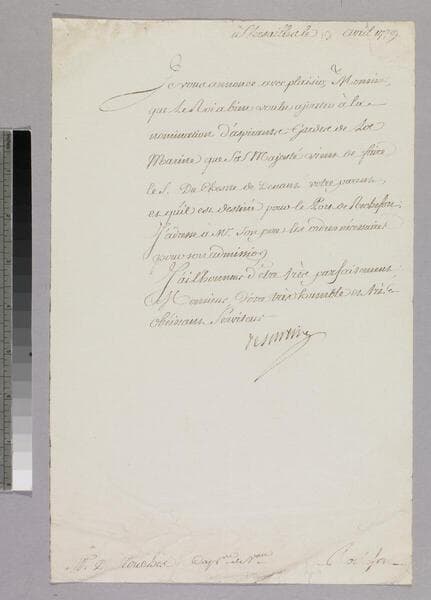 à Versailles le 13 avril 1779
Je vous annonce avec plaisir, Monsieur,
que le Roi a bien voulu ajouter à la
nomination d'aspirants Gardes de la
Marine que Sa Majesté vient de faire
le S. Du Chesne de Denant votre parent,
et qu'il est destiné pour le Port de Rochefort.
J'adresse a Mr. Son pere les ordres nécessaires
pour son admission.
J'ai l'honneur d'être très parfaitement,
Monsieur, votre très humble et très
obéissant Serviteur
de Sartine
M. D. Touches Cap.ne de V.au